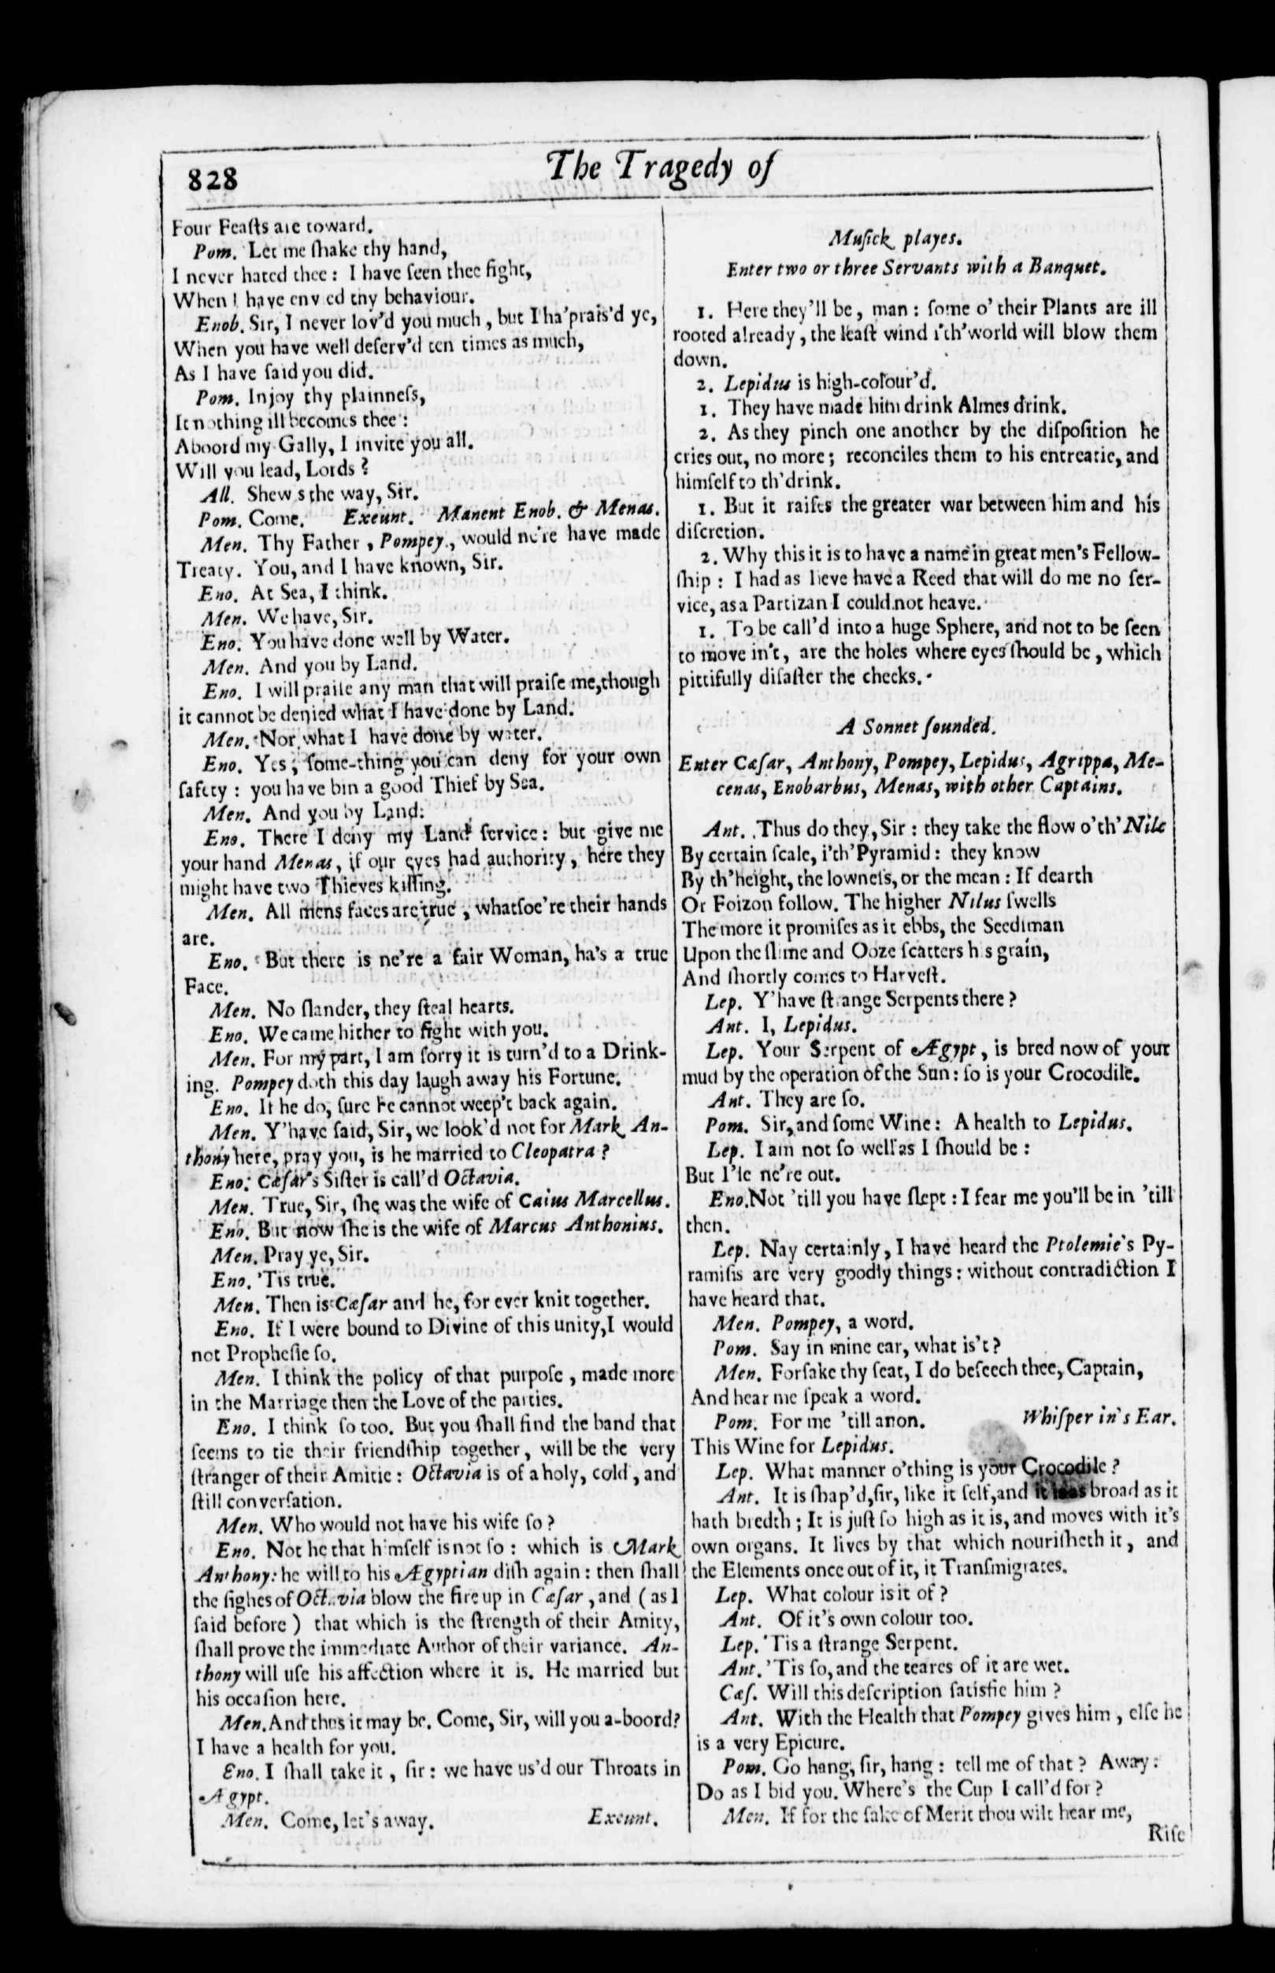 828
The Tragedy of
Four Feaſts are toward.
Pom. Let me ſhake thy hand,
I never hated thee: I have ſeen thee fight,
When I have env ed thy behaviour.
Enob. Sir, I never lov'd you much, but I ha'prais'd ye,
When you have well deſerv'd ten times as much,
As I have ſaid you did.
Pom. Injoy thy plainneſs,
It nothing ill becomes thee:
Aboord my Gally, I invite you all.
Will you lead, Lords?
All. Shew s the way, Sir.
Pom. Come. Exeunt. Manent Enob. & Menas.
Men. Thy Father, Pompey, would ne're have made
Treaty. You, and I have known, Sir.
Eno. At Sea, I think.
Men. We have, Sir.
Eno. You have done well by Water.
Men. And you by Land.
Eno. I will praiſe any man that will praiſe me, though
it cannot be denied what I have done by Land.
Men. Nor what I have done by water.
Eno. Yes, ſome-thing you can deny for your own
ſafety: you have bin a good Thief by Sea.
Men. And you by Land.
Eno. There I deny my Land ſervice: but give me
your hand Menas, if our eyes had authority, here they
might have two Thieves kiſſing.
Men. All mens faces are true, whatſoe're their hands
are.
Eno. But there is ne're a fair Woman, ha's a true
Face.
Men. No ſlander, they ſteal hearts.
Eno. We came hither to fight with you.
Men. For my part, I am ſorry it is turn'd to a Drink-
ing. Pompey doth this day laugh away his Fortune.
Eno. If he do, ſure he cannot weep't back again.
Men. Y'have ſaid, Sir, we look'd not for Mark An-
thony here, pray you, is he married to Cleopatra?
Eno. Cæſar's Siſter is call'd Octavia.
Men. True, Sir, ſhe was the wife of Caius Marcellus.
Eno. But now ſhe is the wife of Marcus Anthonius.
Men. Pray ye, Sir.
Eno. 'Tis true.
Men. Then is Cæſar and he, for ever knit together.
Eno. If I were bound to Divine of this unity, I would
not Propheſie ſo.
Men. I think the policy of that purpoſe, made more
in the Marriage then the Love of the parties.
Eno. I think ſo too. But you ſhall find the band that
ſeems to tie their friendſhip together, will be the very
ſtranger of their Amitie: Octavia is of a holy, cold, and
ſtill converſation.
Men. Who would not have his wife ſo?
Eno. Not he that himſelf is not ſo: which is Mark
Anthony: he will to his Ægyptian diſh again: then ſhall
the ſighes of Octavia blow the fire up in Cæſar, and (as I
ſaid before) that which is the ſtrength of their Amity,
ſhall prove the immediate Author of their variance. An-
thony will uſe his affection where it is. He married but
his occaſion here.
Men. And thus it may be. Come, Sir, will you a-boord?
I have a health for you.
Eno. I ſhall take it, ſir: we have us'd our Throats in
Ægypt.
Men. Come, let's away. Exeunt.
Muſick playes.
Enter two or three Servants with a Banquet.
1. Here they'll be, man: ſome o' their Plants are ill
rooted already, the leaſt wind i'th'world will blow them
down.
2. Lepidus is high-colour'd.
1. They have made him drink Almes drink.
2. As they pinch one another by the diſpoſition he
cries out, no more; reconciles them to his entreatie, and
himſelf to th'drink.
1. But it raiſes the greater war between him and his
diſcretion.
2. Why this it is to have a name in great men's Fellow-
ſhip: I had as lieve have a Reed that will do me no ſer-
vice, as a Partizan I could not heave.
1. To be call'd into a huge Sphere, and not to be ſeen
to move in't, are the holes where eyes ſhould be, which
pittifully diſaſter the cheeks.
A Sonnet ſounded.
Enter Cæſar, Anthony, Pompey, Lepidus, Agrippa, Me-
cenas, Enobarbus, Menas, with other Captains.
Ant. Thus do they, Sir: they take the flow o'th'Nile
By certain ſcale, i'th'Pyramid: they know
By th'height, the lowneſs, or the mean: If dearth
Or Foizon follow. The higher Nilus ſwells
The more it promiſes as it ebbs, the Seedſman
Upon the ſlime and Ooze ſcatters his grain,
And ſhortly comes to Harveſt.
Lep. Y'have ſtrange Serpents there?
Ant. I, Lepidus.
Lep. Your Serpent of Ægypt, is bred now of your
mud by the operation of the Sun: ſo is your Crocodile.
Ant. They are ſo.
Pom. Sir, and ſome Wine: A health to Lepidus.
Lep. I am not ſo well as I ſhould be:
But I'le ne're out.
Eno. Not 'till you have ſlept: I fear me you'll be in 'till
then.
Lep. Nay certainly, I have heard the Ptolemie's Py-
ramiſis are very goodly things: without contradiction I
have heard that.
Men. Pompey, a word.
Pom. Say in mine ear, what is't?
Men. Forſake thy ſeat, I do beſeech thee, Captain,
And hear me ſpeak a word.
Pom. For me 'till anon. Whiſper in's Ear.
This Wine for Lepidus.
Lep. What manner o'thing is your Crocodile?
Ant. It is ſhap'd, ſir, like it ſelf, and it is as broad as it
hath bredth; It is juſt ſo high as it is, and moves with it's
own organs. It lives by that which nouriſheth it, and
the Elements once out of it, it Tranſmigrates.
Lep. What colour is it of?
Ant. Of it's own colour too.
Lep. 'Tis a ſtrange Serpent.
Ant. 'Tis ſo, and the teares of it are wet.
Cæſ. Will this deſcription ſatisfie him?
Ant. With the Health that Pompey gives him, elſe he
is a very Epicure.
Pom. Go hang, ſir, hang: tell me of that? Away:
Do as I bid you. Where's the Cup I call'd for?
Men. If for the ſake of Merit thou wilt hear me,
Riſe